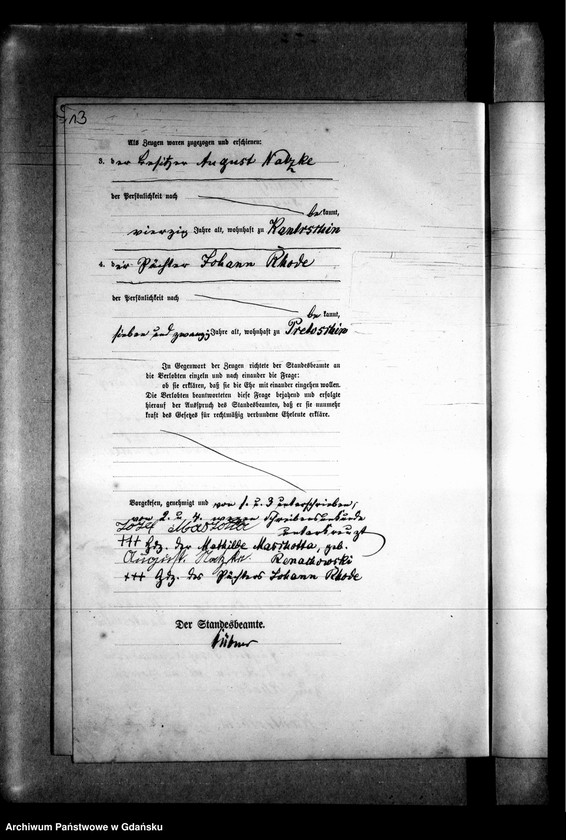 13
Als Zeugen waren zugezogen und erschienen:
3. der Besitzer August Natzke
der Persönlichkeit nach
be kannt,
vierzig Jahre alt, wohnhaft zu
4. der Pächter Johann Rhode
der Persönlichkeit nach
be kannt,
sieben und zwanzig Jahre alt, wohnhaft zu Pretoschin
In Gegenwart der Zeugen richtete der Standesbeamte an
die Verlobten einzeln und nach einander die Frage:
ob sie erklären, daß sie die Ehe mit einander eingehen wollen.
Die Verlobten beantworteten diese Frage bejahend und erfolgte
hierauf der Ausspruch des Standesbeamten, daß er sie nunmehr
kraft des Gesetzes für rechtmäßig verbundene Eheleute erkläre.
Vorgelesen, genehmigt und von 1. u. 3 unterschrieben,
von 2. u. 4. wegen Schreibensunkunde
unterkreuzt
Josef
+++ Hdz. der Mathilde Marschotta, geb.
August Natzke Renachowski
+++ Hdz. des Pächters Johann Rhode
Der Standesbeamte.
Archiwum Państwowe w Gdańsku